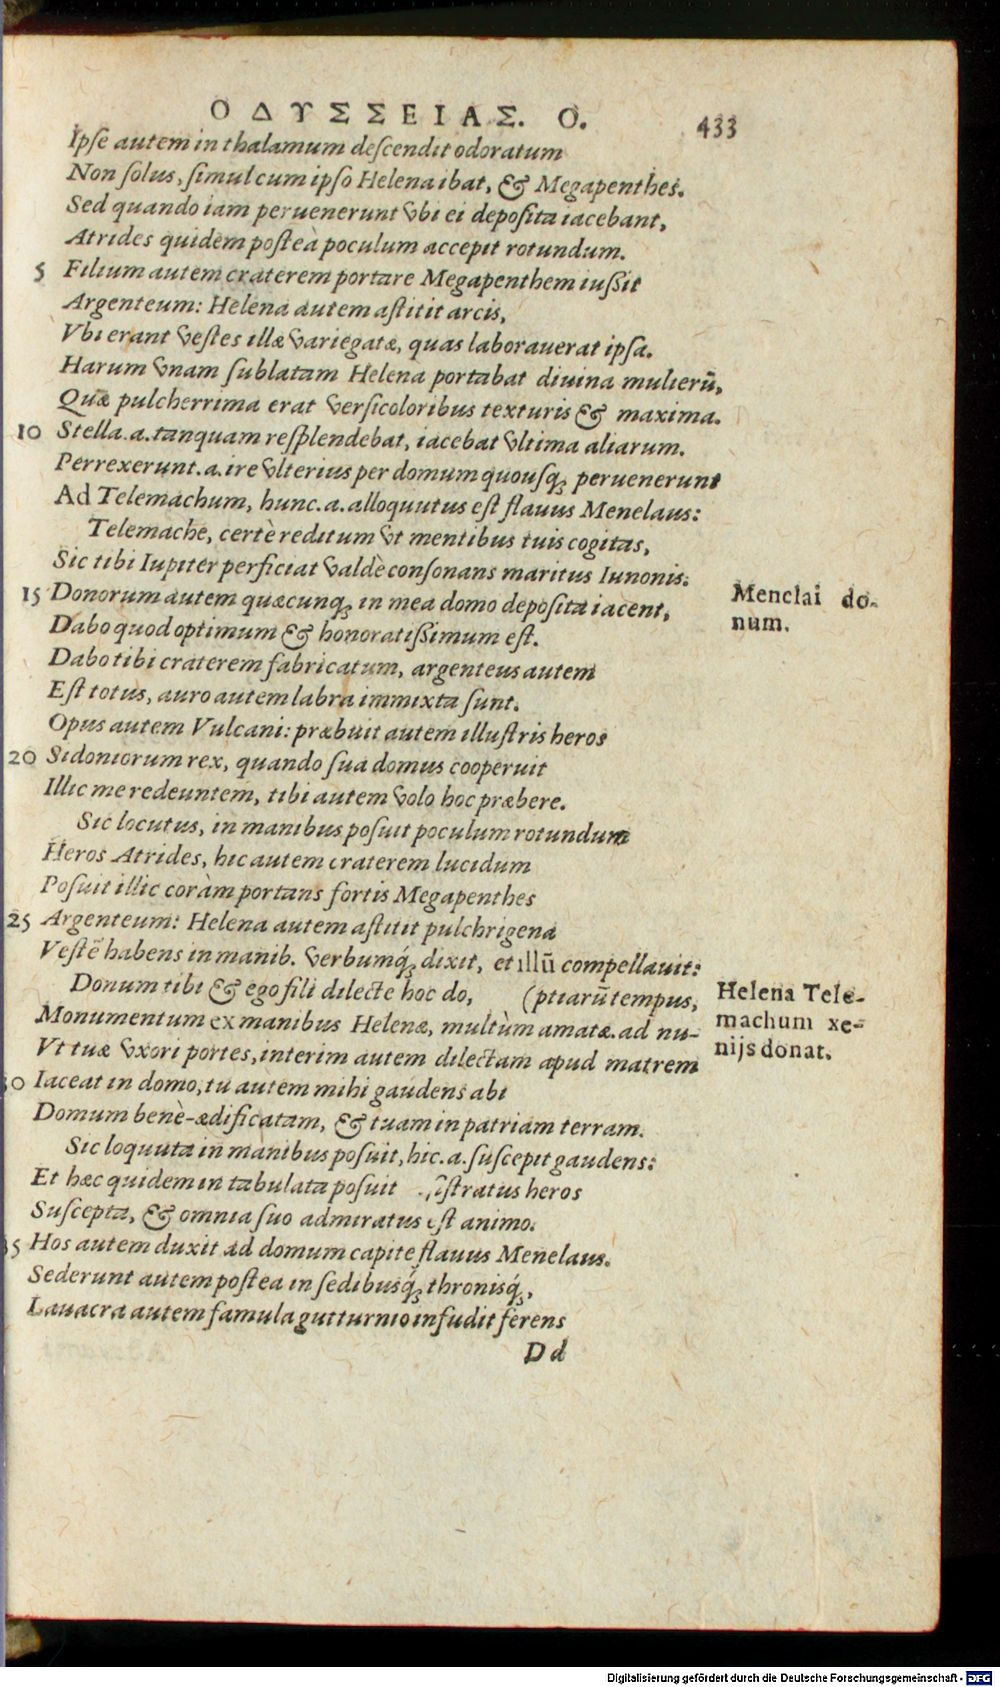 ΟΔΥΣΣΕΙΑΣ. Ο. 433
Ipſe autem in thalamum deſcendit odoratum
Non ſolus, ſimul cum ipſo Helena ibat, & Megapenthes.
Sed quando iam peruenerunt vbi ei depoſita iacebant,
Atrides quidem poſteà poculum accepit rotundum.
5 Filium autem craterem portare Megapenthem iuſſit
Argenteum: Helena autem aſtitit arcis,
Vbi erant veſtes illæ variegatæ, quas laborauerat ipſa.
Harum vnam ſublatam Helena portabat diuina mulierũ,
Quæ pulcherrima erat verſicoloribus texturis & maxima.
10 Stella.a.tanquam reſplendebat, iacebat vltima aliarum.
Perrexerunt.a.ire vlterius per domum quouſq; peruenerunt
Ad Telemachum, hunc.a.alloquutus eſt flauus Menelaus:
Telemache, certè reditum vt mentibus tuis cogitas,
Sic tibi Iupiter perficiat valdè conſonans maritus Iunonis.
15 Donorum autem quæcunq; in mea domo depoſita iacent,
Menelai do-
num.
Dabo quod optimum & honoratiſſimum eſt.
Dabo tibi craterem fabricatum, argenteus autem
Eſt totus, auro autem labra immixta ſunt.
Opus autem Vulcani: præbuit autem illuſtris heros
20 Sidoniorum rex, quando ſua domus cooperuit
Illic me redeuntem, tibi autem volo hoc præbere.
Sic locutus, in manibus poſuit poculum rotundum
Heros Atrides, hic autem craterem lucidum
Poſuit illic coràm portans fortis Megapenthes
25 Argenteum: Helena autem aſtitit pulchrigena
Veſtẽ habens in manib. verbumq́; dixit, et illũ compellauit:
Donum tibi & ego fili dilecte hoc do, (ptiarũ tempus,
Helena Tele-
machum xe-
nijs donat.
Monumentum ex manibus Helenæ, multùm amatæ.ad nu-
Vt tuæ vxori portes, interim autem dilectam apud matrem
30 Iaceat in domo, tu autem mihi gaudens abi
Domum benè-ædificatam, & tuam in patriam terram.
Sic loquuta in manibus poſuit, hic.a.ſuſcepit gaudens:
Et hæc quidem in tabulata poſuit ſiſtratus heros
Suſcepta, & omnia ſuo admiratus eſt animo.
35 Hos autem duxit ad domum capite flauus Menelaus.
Sederunt autem poſtea in ſedibusq́; thronisq́;,
Lauacra autem famula gutturnio infudit ferens
Dd
Digitalisierung gefördert durch die Deutsche Forschungsgemeinschaft - DFG